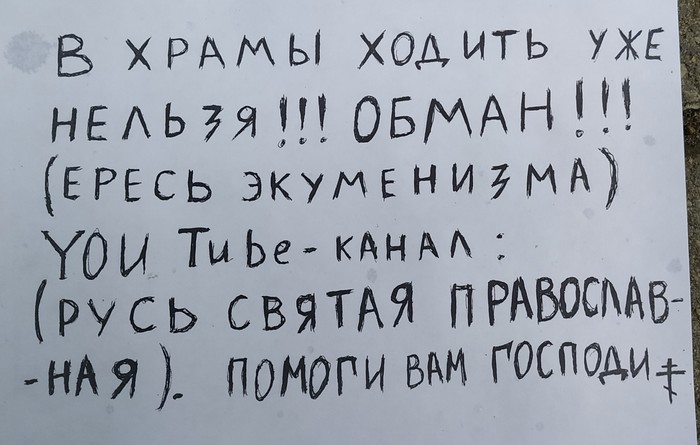 В ХРАМЫ ХОДИТЬ УЖЕ
НЕЛЬЗЯ!!! ОБМАН!!!
(ЕРЕСЬ ЭКУМЕНИЗМА)
YOU Tube-КАНАЛ:
(РУСЬ СВЯТАЯ ПРАВОСЛАВ-
-НАЯ). ПОМОГИ ВАМ ГОСПОДИ ☦